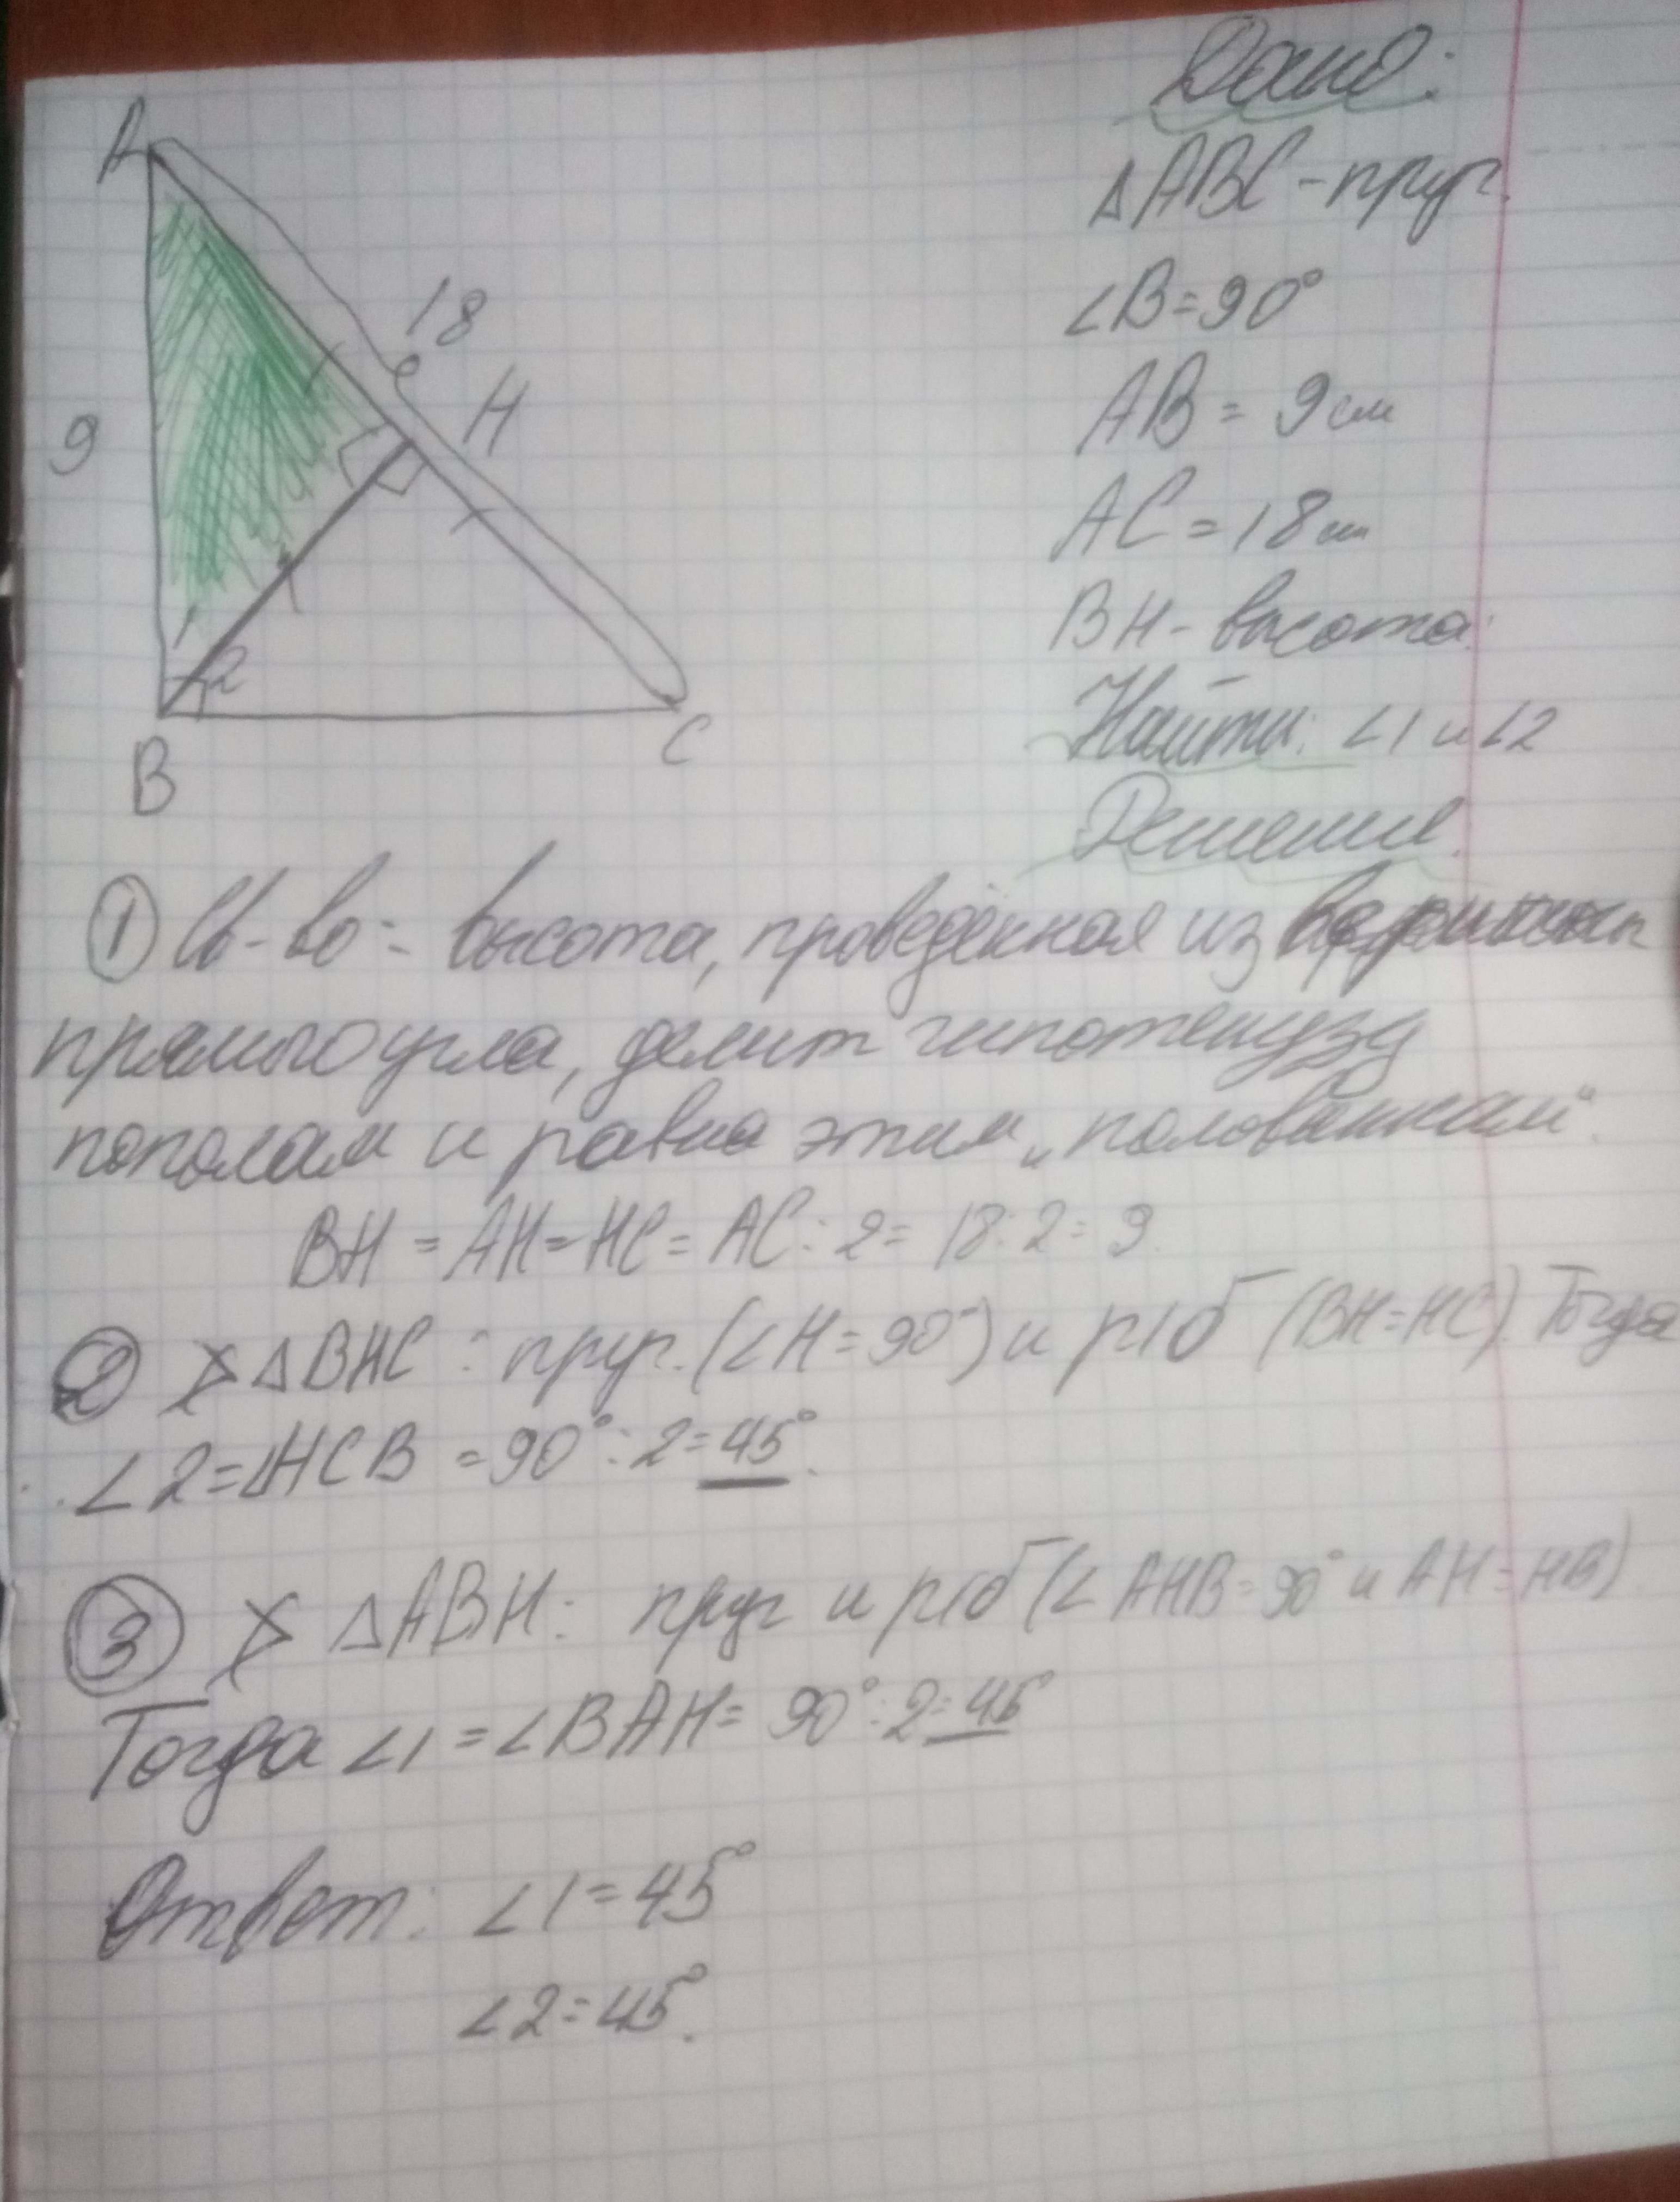 Дано:
A
△ABC-пруг.
∠B=90°
18
H
AB = 9см
9
AC = 18см
BH - высота.
2
Найти: ∠1 и ∠2
B
C
Решение.
① Св-во: высота, проведённая из вершины
прямого угла, делит гипотенузу
пополам и равна этим „половинкам".
BH = AH = HC = AC : 2 = 18 : 2 = 9.
② △BHC : пруг. (∠H = 90°) и р/б (BH=HC). Тогда
∠2=∠HCB = 90° : 2 = 45°.
③ △ABH: пруг и р/б (∠AHB = 90° и AH = HB)
Тогда ∠1 = ∠BAH = 90° : 2 = 45°
Ответ: ∠1 = 45°
∠2 = 45°.